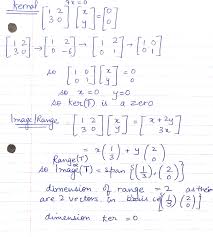 Kernel Tx = 0
[1 2; 3 0] [x; y] = [0; 0]
[1 2; 3 0] → [1 2; 0 -6] → [1 2; 0 1] → [1 0; 0 1]
so [1 0; 0 1] [x; y] = 0
so x = 0 y = 0
so ker(T) is a zero
Image/Range [1 2; 3 0] [x; y] = [x + 2y; 3x]
= x(1; 3) + y(2; 0)
Range(T)
so Image(T) = span {(1; 3), (2; 0)}
dimension of range = 2 as there
are 2 vectors in basis {(1; 3) (2; 0)}
dimension ker = 0